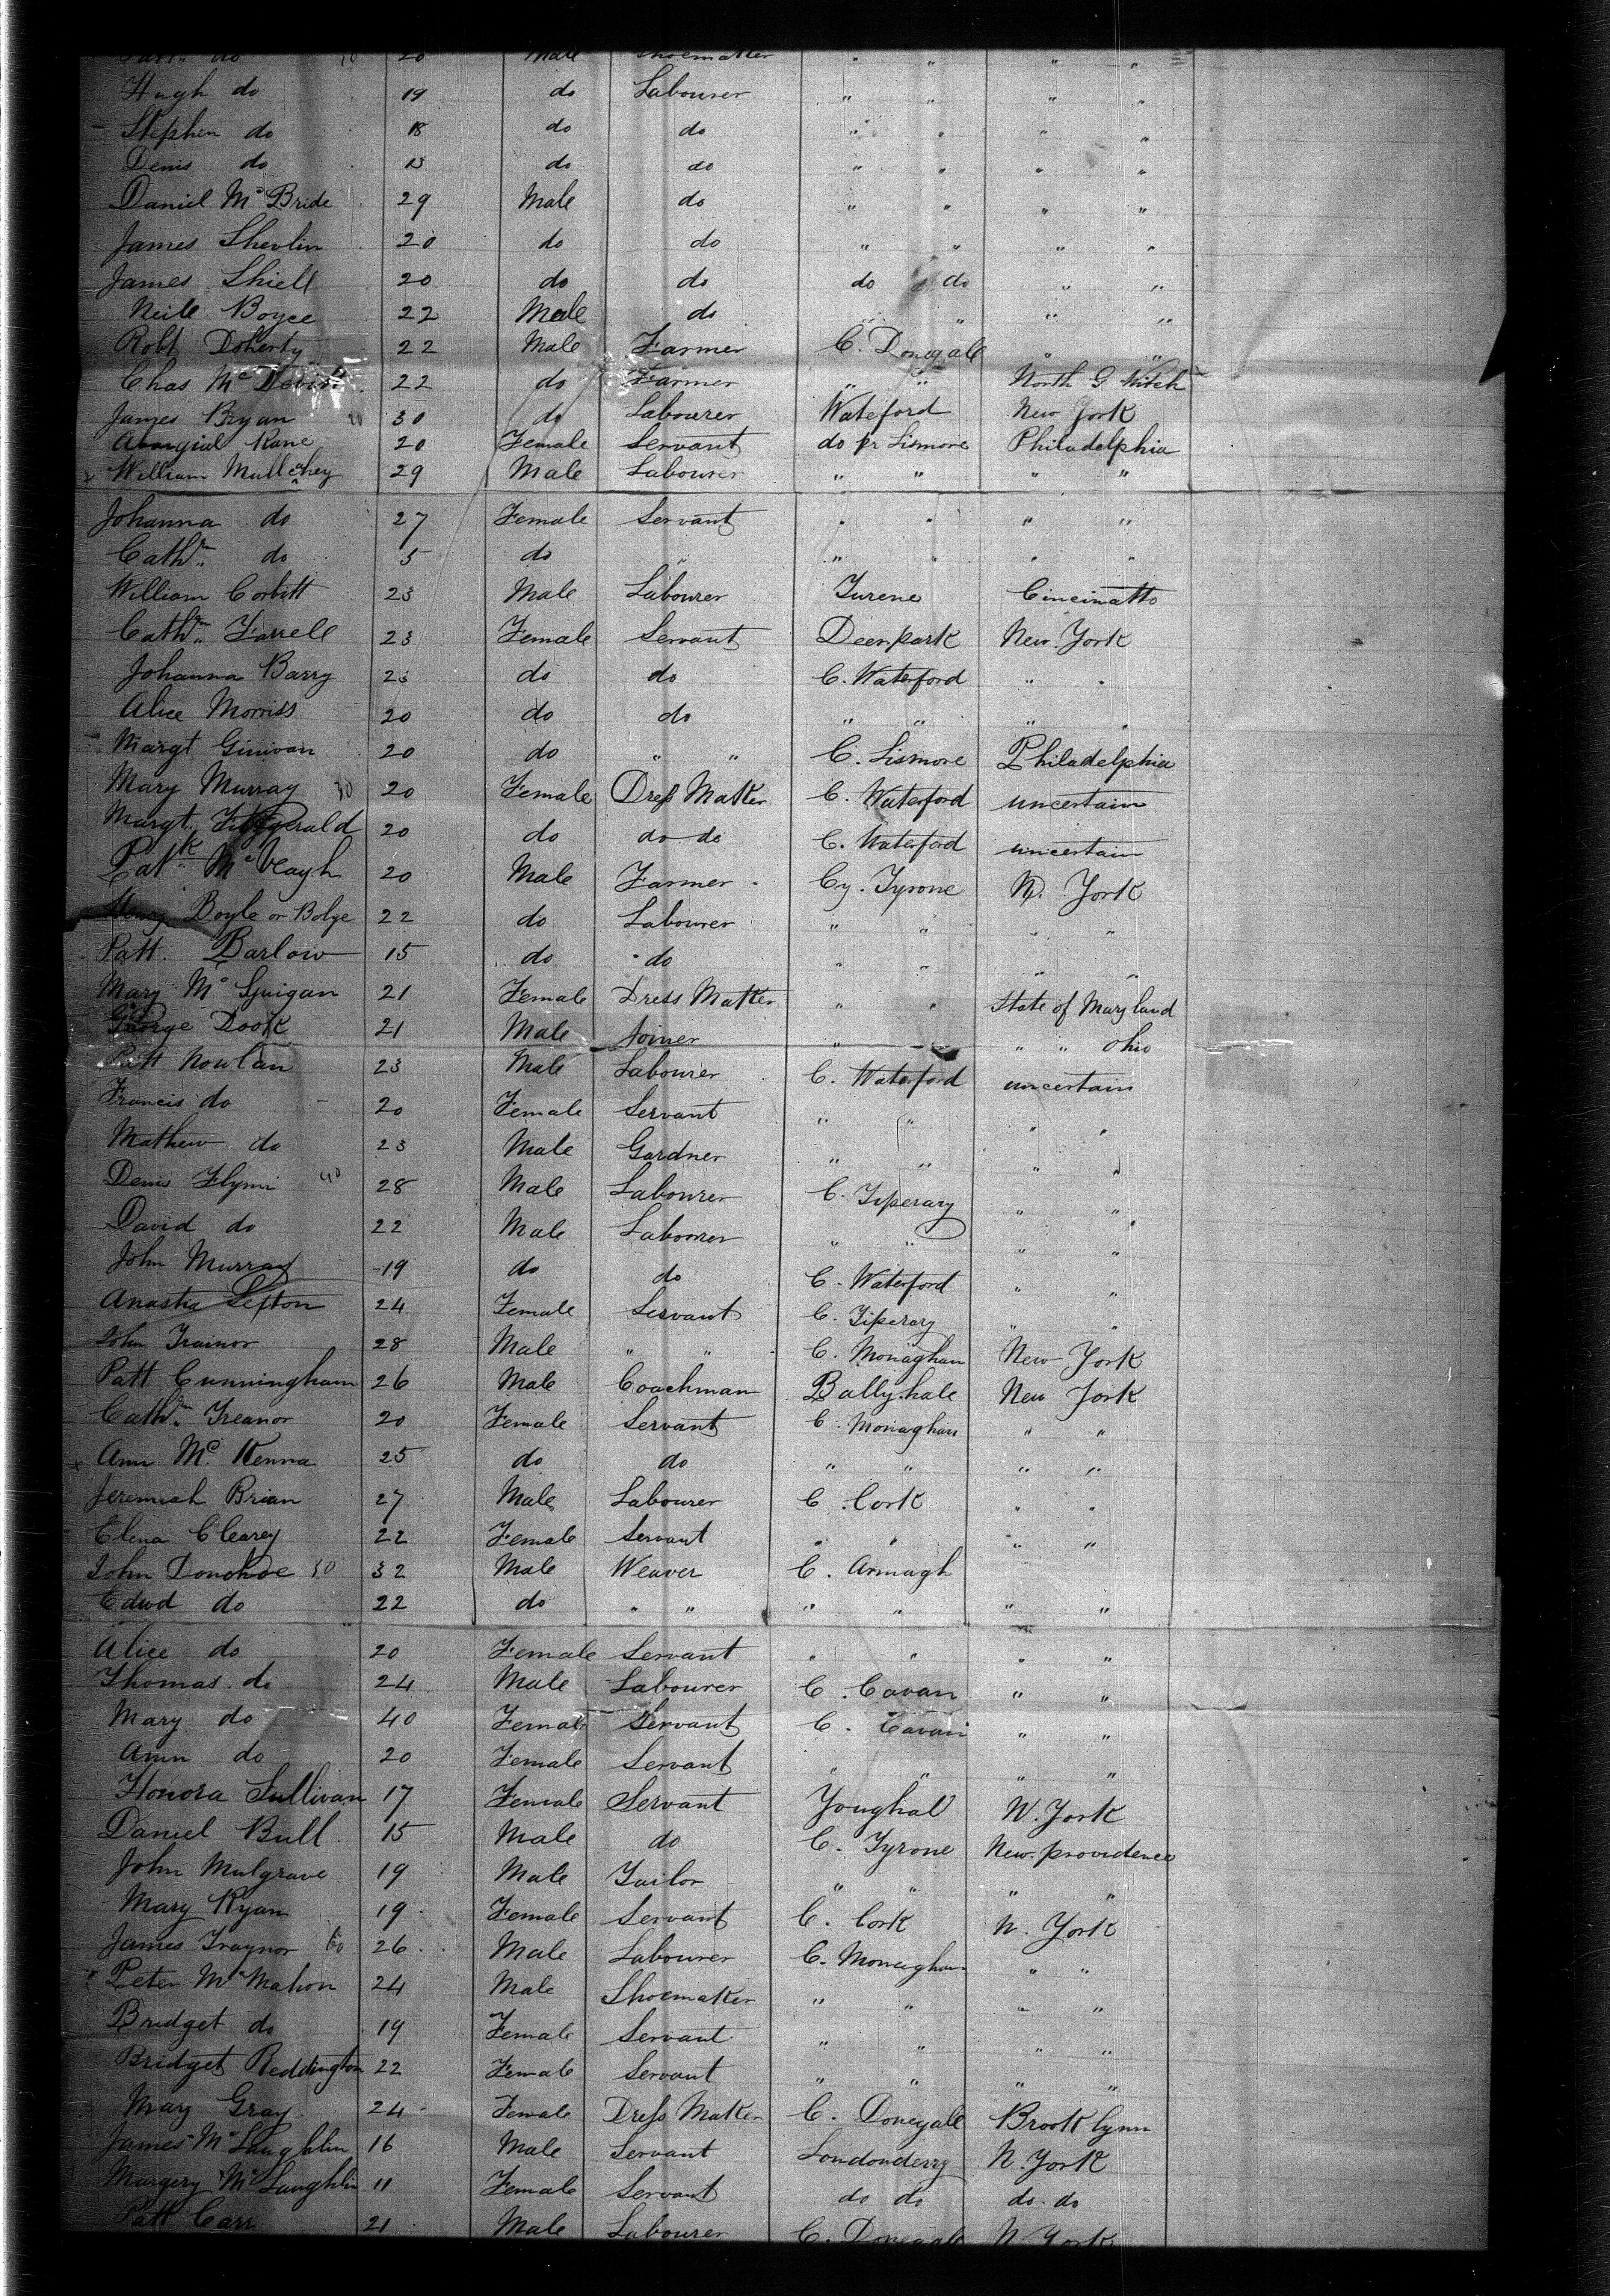 Patt. do 10 20 Male Shoemaker " " " "
Hugh do 19 do Labourer " " " "
Stephen do 18 do do " " " "
Denis do 13 do do " " " "
Daniel Mc Bride 29 Male do " " " "
James Shevlin 20 do do " " " "
James Shiell 20 do do do do " "
Neile Boyce 22 Male do " " " "
Robt Doherty 22 Male Farmer C. Donegall " "
Chas Mc Devitt 22 do Farmer " " North G
James Bryan 20 30 do Labourer Wateford New York
Kane 20 Female Servant do pr Lismore Philadelphia
x William Mullchey 29 Male Labourer " " " "
Johanna do 27 Female Servant " " " "
Cathrn do 5 do " " " " "
William Corbitt 23 Male Labourer Turene Cincinatto
Cathrn Farrell 23 Female Servant Deerpark New York
Johanna Barry 23 do do C. Waterford " "
Alice Morriss 20 do do " " " "
Margt Ginivan 20 do " " C. Lismore Philadelphia
Mary Murray 30 20 Female Dress Maker C. Waterford uncertain
Margt. Fitzgerald 20 do do do C. Waterford uncertain
Patk Mc Veagh 20 Male Farmer Cy. Tyrone N. York
Henry Boyle or Bolye 22 do Labourer " " " "
Patt. Barlow 15 do do " " " "
Mary Mc Guigan 21 Female Dress Maker " " State of Maryland
George Dook 21 Male Joiner " " " " Ohio
Patt Nowlan 23 Male Labourer C. Waterford uncertain
Francis do 20 Female Servant " " " "
Mathew do 23 Male Gardner " " " "
Denis Flynn 40 28 Male Labourer C. Tiperary " "
David do 22 Male Labourer " " " "
John Murray 19 do do C. Waterford " "
Anastia Sefton 24 Female Servant C. Tiperary " "
John Trainor 28 Male " " C. Monaghan New York
Patt Cunningham 26 Male Coachman Ballyhale New York
Cathrn Treanor 20 Female Servant C. Monaghan " "
x Ann Mc Kenna 25 do do " " " "
Jeremiah Brian 27 Male Labourer C. Cork " "
Elena Clearey 22 Female Servant " " " "
John Donohoe 50 32 Male Weaver C. Armagh
Edwd do 22 do " " " " " "
Alice do 20 Female Servant " " " "
Thomas do 24 Male Labourer C. Cavan " "
Mary do 40 Female Servant C. Cavan " "
Ann do 20 Female Servant " " " "
Honora Sullivan 17 Female Servant Youghal N. York
Daniel Bull 15 Male do C. Tyrone New providence
John Mulgrave 19 Male Tailor " " " "
Mary Ryan 19 Female Servant C. Cork N. York
James Traynor 60 26 Male Labourer C. Monaghan " "
Peter Mc Mahon 24 Male Shoemaker " " " "
Bridget do 19 Female Servant " " " "
Bridget Reddington 22 Female Servant " " " "
Mary Gray 24 Female Dress Maker C. Donegall Brooklynn
James Mc Laughlin 16 Male Servant Londonderry N. York
Margery Mc Laughlin 11 Female Servant do do do. do
Patt Carr 21 Male Labourer C. Donegale N York